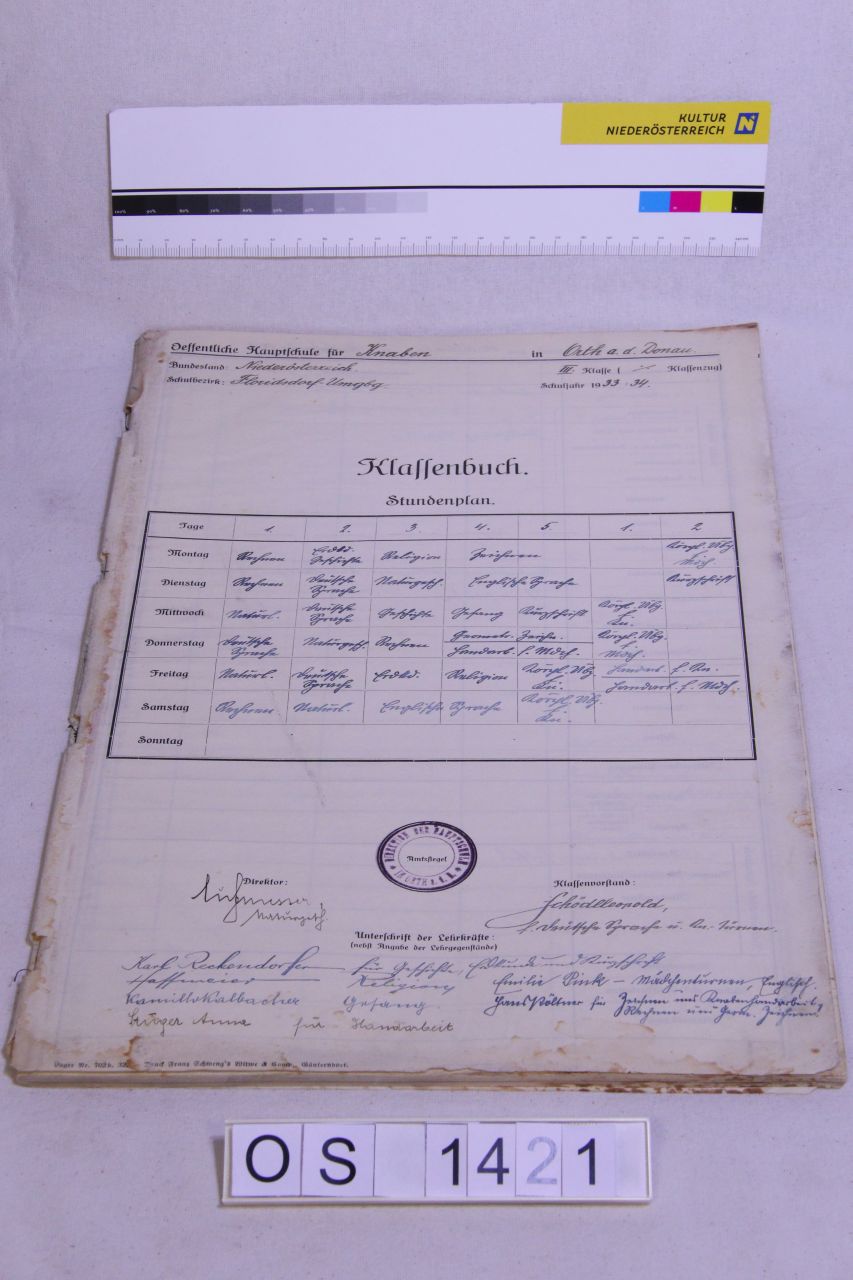 KULTUR
NIEDERÖSTERREICH
Oeffentliche Hauptschule für Knaben in Orth a. d. Donau.
Bundesland: Niederösterreich III. Klasse ( Klassenzug)
Schulbezirk: Floridsdorf-Umgbg. Schuljahr 1933-34.
Klassenbuch.
Stundenplan.
Tage 1. 2. 3. 4. 5. 1. 2
Montag Rechnen Erdkd. Geschichte Religion Zeichnen Körpl. Übg. f. Mdch.
Dienstag Rechnen Deutsche Sprache Naturgesch. Englische Sprache Kurzschrift
Mittwoch Naturl. Deutsche Sprache Geschichte Gesang Kurzschrift Körpl. Übg. f. Kn.
Donnerstag Deutsche Sprache Naturgesch. Rechnen Geometr. Zeichn. Handarb. f. Mdch. Körpl. Übg. f. Mdch.
Freitag Naturl. Deutsche Sprache Erdkd. Religion Körpl. Übg. f. Kn. Handarb. f. Kn. Handarb. f. Mdch.
Samstag Rechnen Naturl. Englische Sprache Körpl. Übg. f. Kn.
Sonntag
DIREKTION DER HAUPTSCHULE
Amtssiegel
IN ORTH A. D. D.
Direktor: Klassenvorstand:
Naturgesch. Schödl Leopold,
f. Deutsche Sprache u. Kn.-Turnen.
Unterschrift der Lehrkräfte:
(nebst Angabe der Lehrgegenstände)
Karl Reckendorfer für Geschichte, Erdkunde und Kurzschrift
Haffmeier Religion Emilie Pink – Mädchenturnen, Englisch.
Kamillo Kalbacher Gesang Hans Pöltner für Zeichnen und Knabenhandarbeit,
Rechnen und Geom. Zeichnen.
Krüger Anna für Handarbeit
Lager Nr. Druck Franz Schweng's Witwe &
OS 1421